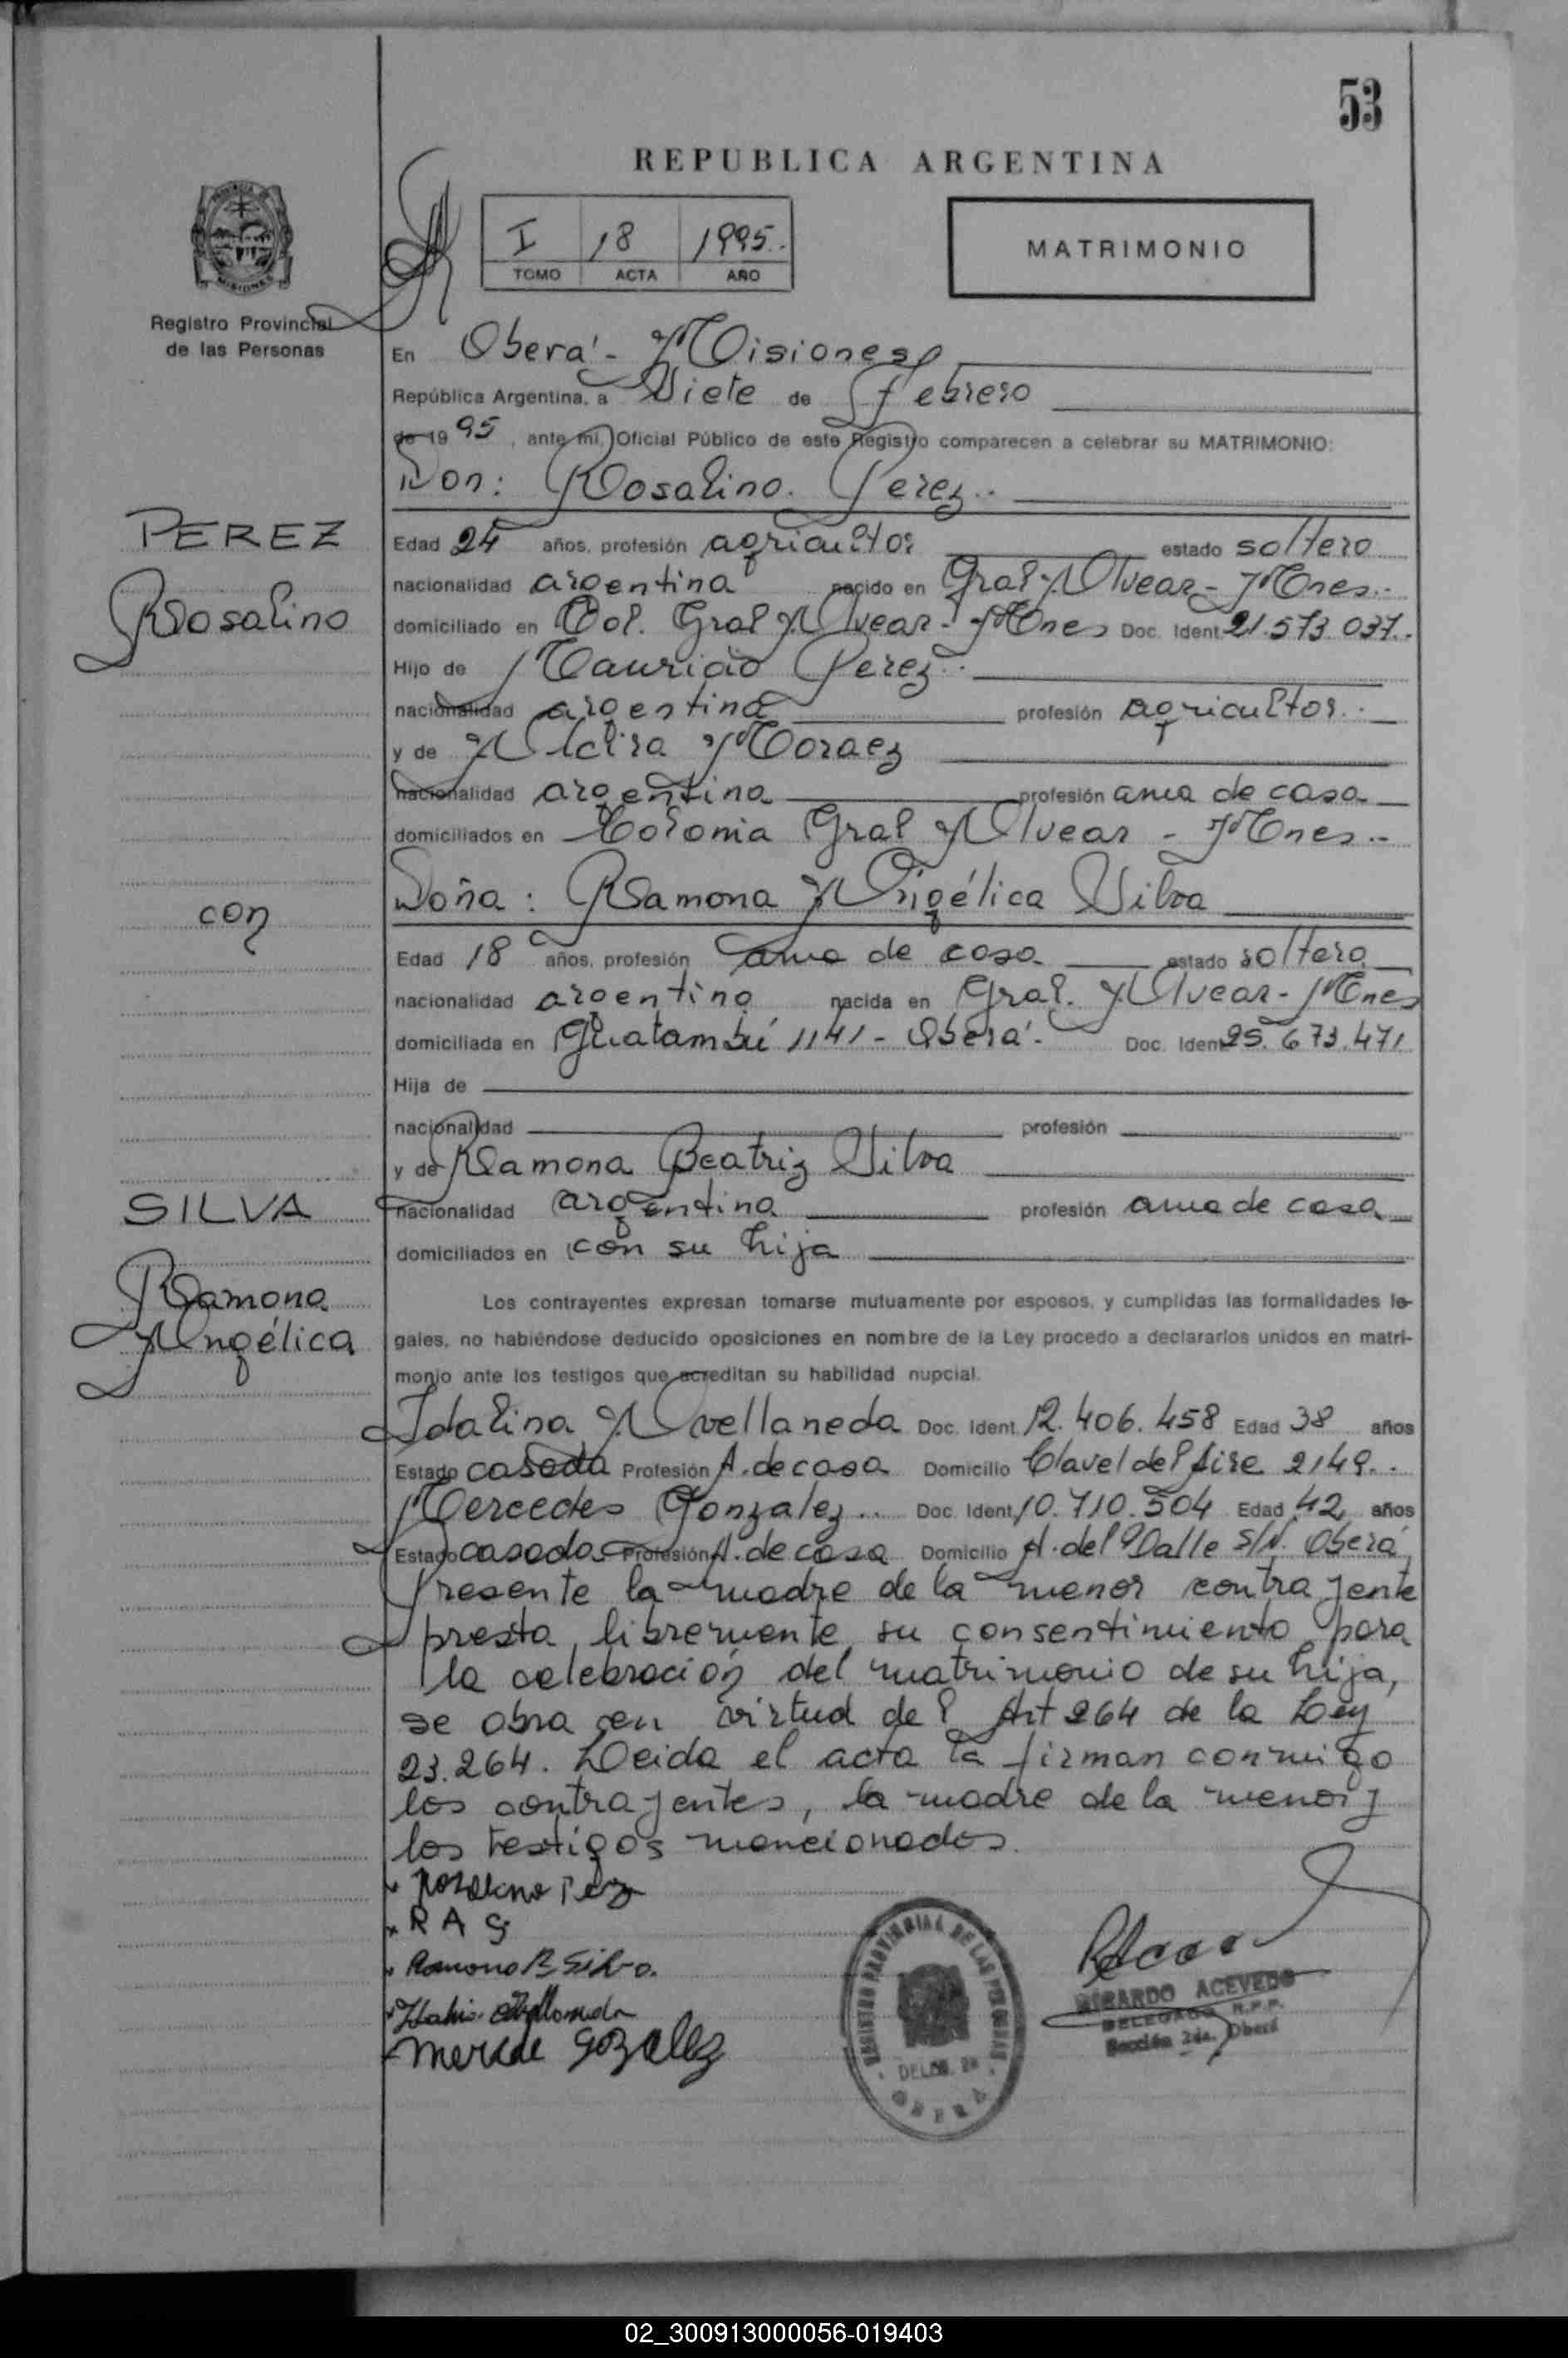 53
REPUBLICA ARGENTINA
I 18 1995.
TOMO ACTA AÑO
MATRIMONIO
Registro Provincial
de las Personas
En Oberá - Misiones
República Argentina, a Siete de Febrero
de 1995, ante mí, Oficial Público de este Registro comparecen a celebrar su MATRIMONIO:
Don: Rosalino Perez..
PEREZ
Rosalino
Edad 24 años, profesión agricultor estado soltero
nacionalidad argentina nacido en Gral Alvear - Mnes..
domiciliado en Col. Gral Alvear - Mnes Doc. Ident. 21.573.037..
Hijo de Mauricio Perez..
nacionalidad argentina profesión agricultor..
y de Alcira Moraez
nacionalidad argentina profesión ama de casa
domiciliados en Colonia Gral Alvear - Mnes..
con
Doña: Ramona Angélica Silva
Edad 18 años, profesión ama de casa estado soltera
nacionalidad argentina nacida en Gral. Alvear - Mnes
domiciliada en Guatambú 1141 - Oberá - Doc. Ident. 25.673.471
Hija de
nacionalidad profesión
y de Ramona Beatriz Silva
SILVA
Ramona
Angélica
nacionalidad argentina profesión ama de casa
domiciliados en con su hija
Los contrayentes expresan tomarse mutuamente por esposos, y cumplidas las formalidades le-
gales, no habiéndose deducido oposiciones en nombre de la Ley procedo a declararlos unidos en matri-
monio ante los testigos que acreditan su habilidad nupcial.
Idalina Avellaneda Doc. Ident. 12.406.458 Edad 38 años
Estado casada Profesión A. de casa Domicilio Clavel del Aire 2149..
Mercedes Gonzalez.. Doc. Ident. 10.710.504 Edad 42 años
Estado casada Profesión A. de casa Domicilio A. del Valle S/N. Oberá
Presente la madre de la menor contrayente
presta libremente su consentimiento para
la celebración del matrimonio de su hija,
se obra en virtud del Art 264 de la Ley
23.264. Leida el acta la firman conmigo
los contrayentes, la madre de la menor y
los testigos mencionados.
Rosalino Perez
R A S
Ramona B Silva.
Avellaneda
Mersede Gozalez
REGISTRO PROVINCIAL DE LAS PERSONAS
DELEG. 2a
OBERA
ACEVEDO
DELEGADO R.P.P.
Sección 2da. Oberá
02_300913000056-019403